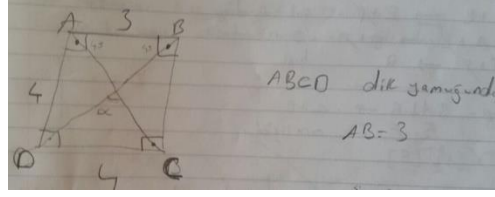 3
A B
4
α
D C
4
ABCD dik yamuğund
AB = 3